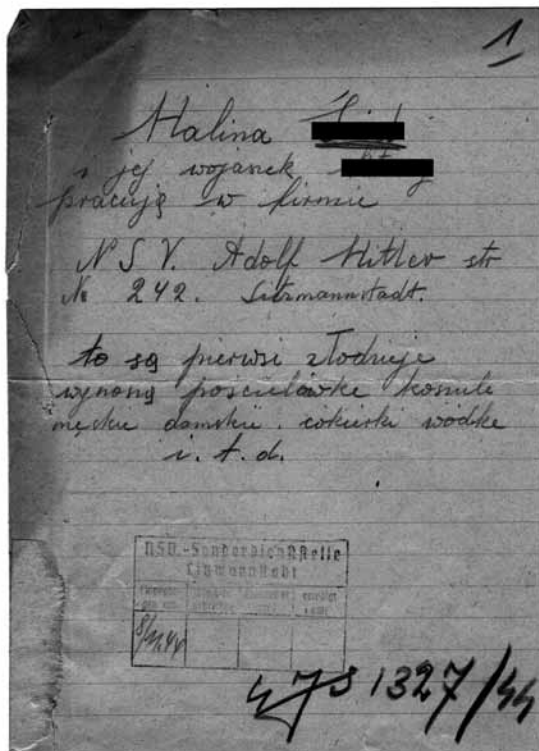 1
Halina
i jej wojanek
pracują w firmie
N S V. Adolf Hitler str
№ 242. Litzmannstadt.
to są pierwsi złodzieje
wynoszą pościelówke koszule
męskie damskie. cókierki wódke
i. t. d.
NSV.-Sonderdienststelle
Litzmannstadt
1327/44